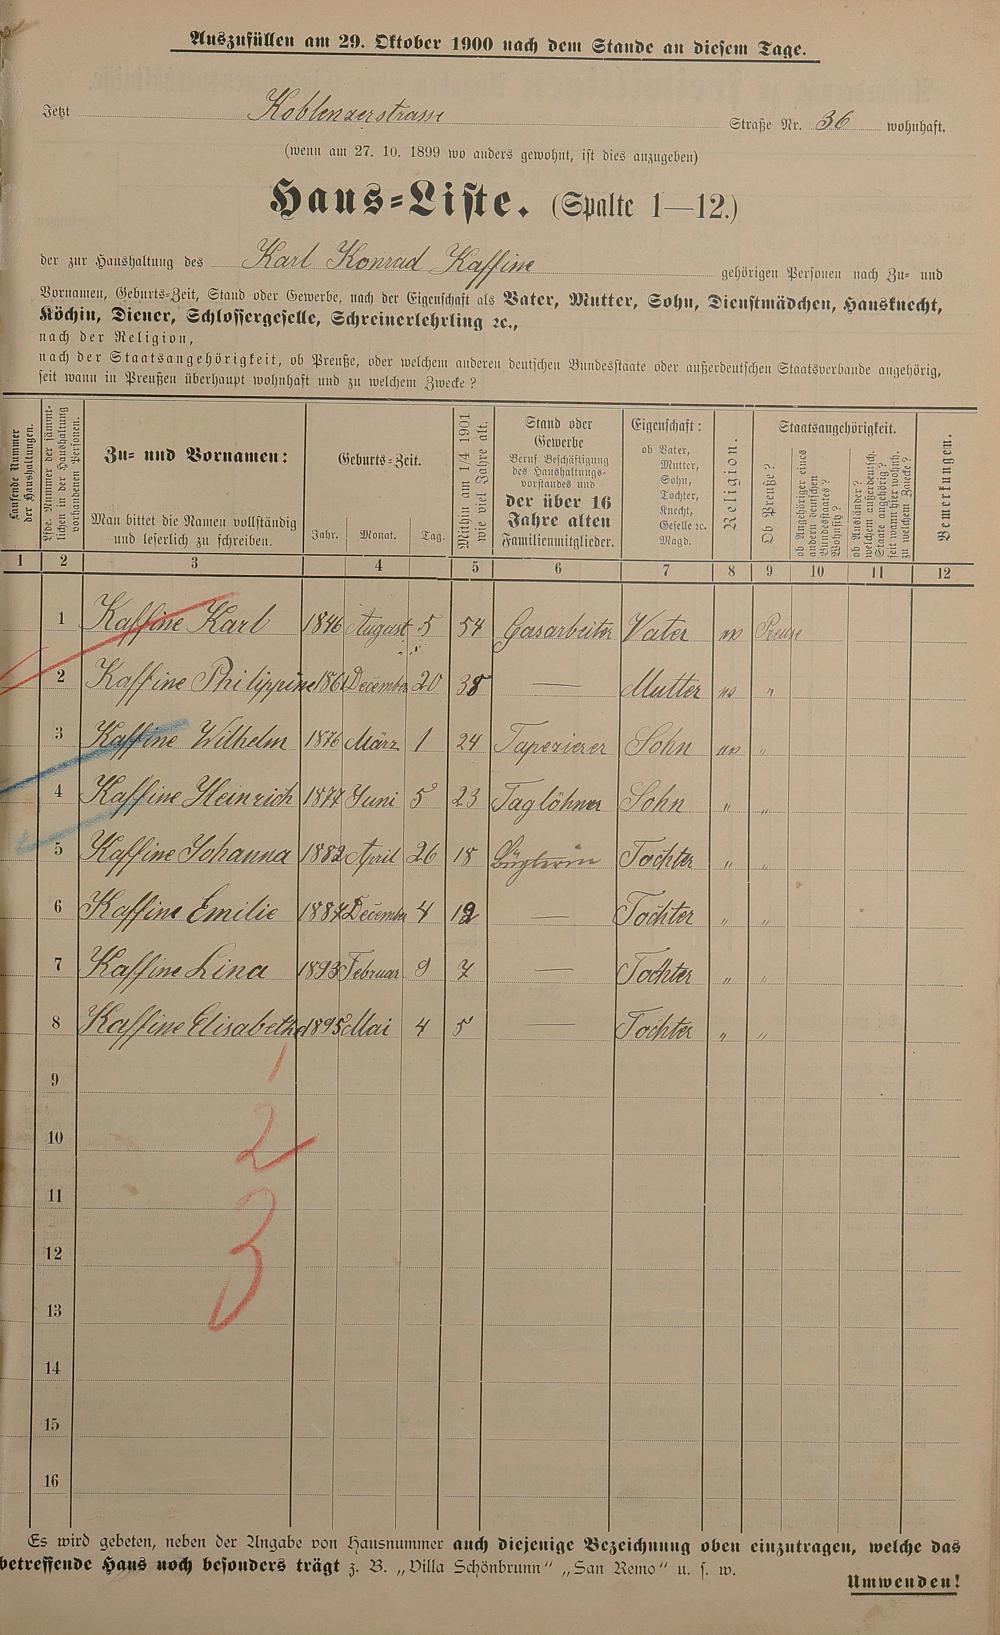 Auszufüllen am 29. Oktober 1900 nach dem Stande an diesem Tage.
Jetzt Koblenzerstrasse Straße Nr. 36 wohnhaft.
(wenn am 27. 10. 1899 wo anders gewohnt, ist dies anzugeben)
Haus-Liste. (Spalte 1—12.)
der zur Haushaltung des Karl Konrad Kaffine gehörigen Personen nach Zu- und
Vornamen, Geburts-Zeit, Stand oder Gewerbe, nach der Eigenschaft als Vater, Mutter, Sohn, Dienstmädchen, Hausknecht,
Köchin, Diener, Schlossergeselle, Schreinerlehrling ꝛc.,
nach der Religion,
nach der Staatsangehörigkeit, ob Preuße, oder welchem anderen deutschen Bundesstaate oder außerdeutschen Staatsverbande angehörig,
seit wann in Preußen überhaupt wohnhaft und zu welchem Zwecke?
Laufende Nummer
der Haushaltungen.
Lfde. Nummer der sämmt-
lichen in der Haushaltung
vorhandenen Personen.
Zu- und Vornamen:
Man bittet die Namen vollständig
und leserlich zu schreiben.
Geburts-Zeit.
Jahr. Monat. Tag.
Mithin am 1/4 1901
wie viel Jahre alt.
Stand oder
Gewerbe
Beruf Beschäftigung
des Haushaltungs-
vorstandes und
der über 16
Jahre alten
Familienmitglieder.
Eigenschaft:
ob Vater,
Mutter,
Sohn,
Tochter,
Knecht,
Geselle ꝛc.
Magd.
Religion.
Staatsangehörigkeit.
Ob Preuße?
ob Angehöriger eines
andern deutschen
Bundesstaates?
Wohnsitz?
ob Ausländer?
welchem außerdeutsch.
Staate angehörig?
seit wann hier wohnh.
zu welchem Zwecke?
Bemerkungen.
1 2 3 4 5 6 7 8 9 10 11 12
1 Kaffine Karl 1846 August 5 54 Gasarbeiter Vater Preuse
2 Kaffine Philippine 1861 December 20 38 — Mutter "
3 Kaffine Wilhelm 1876 März 1 24 Tapezierer Sohn "
4 Kaffine Heinrich 1877 Juni 5 23 Taglöhner Sohn " "
5 Kaffine Johanna 1882 April 26 18 Büglerin Tochter " "
6 Kaffine Emilie 1887 December 4 12 — Tochter " "
7 Kaffine Lina 1893 Februar 9 7 — Tochter " "
8 Kaffine Elisabethe 1895 Mai 4 5 — Tochter " "
9
1
10
2
11
12
3
13
14
15
16
Es wird gebeten, neben der Angabe von Hausnummer auch diejenige Bezeichnung oben einzutragen, welche das
betreffende Haus noch besonders trägt z. B. „Villa Schönbrunn" „San Remo" u. s. w.
Umwenden!